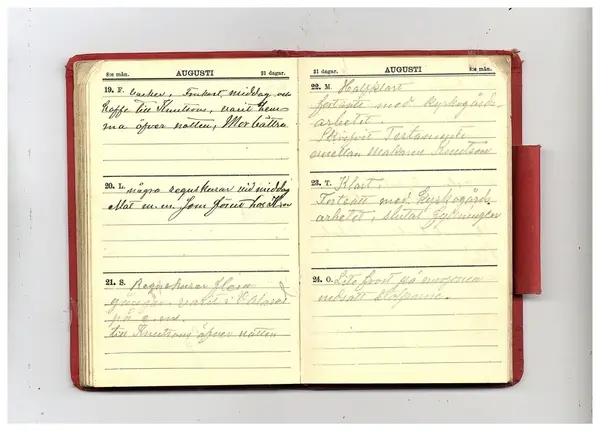 8:e mån.
AUGUSTI
31 dagar.
19. F. vacker, Frukost, middag och
Kaffe till Knutsons, varit hem-
ma öfver natten, Mor bättre
20. L. några regnskurar vid middag
Mat m.m. Som förut hos
21. S. Regnskurar flera
gånger varit i
på e.m.
till Knutsons öfver natten
31 dagar.
AUGUSTI
8:e mån.
22. M. Halfklart
fortsatt med Kyrkogårds
arbetet.
Skrifvit Testamente
emellan makarne Knutson
23. T. Klart,
Fortsatt med Kyrkogårds
arbetet, slutat
24. O. Lite frost på morgonen